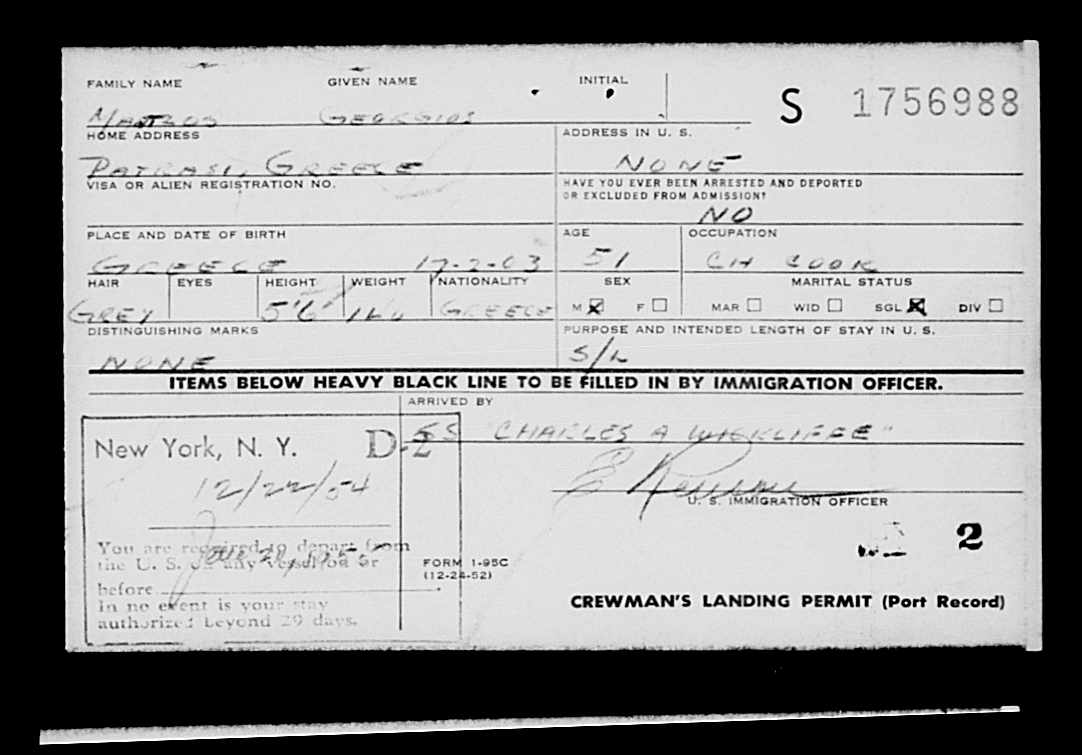 FAMILY NAME GIVEN NAME INITIAL
S 1756988
GEORGIOS
HOME ADDRESS ADDRESS IN U. S.
PATRASI, GREECE NONE
VISA OR ALIEN REGISTRATION NO. HAVE YOU EVER BEEN ARRESTED AND DEPORTED
OR EXCLUDED FROM ADMISSION?
NO
PLACE AND DATE OF BIRTH AGE OCCUPATION
GREECE 17-2-03 51 CH COOK
HAIR EYES HEIGHT WEIGHT NATIONALITY SEX MARITAL STATUS
GREY 5'6" GREECE M F MAR WID SGL DIV
DISTINGUISHING MARKS PURPOSE AND INTENDED LENGTH OF STAY IN U. S.
NONE S/L
ITEMS BELOW HEAVY BLACK LINE TO BE FILLED IN BY IMMIGRATION OFFICER.
ARRIVED BY
SS "CHARLES A WICKLIFFE"
New York, N. Y. D-2
12/22/54
U. S. IMMIGRATION OFFICER
You are required to depart from
the U. S. on any vessel on or
before
In no event is your stay
authorized beyond 29 days.
FORM I-95C
(12-24-52)
2
CREWMAN'S LANDING PERMIT (Port Record)